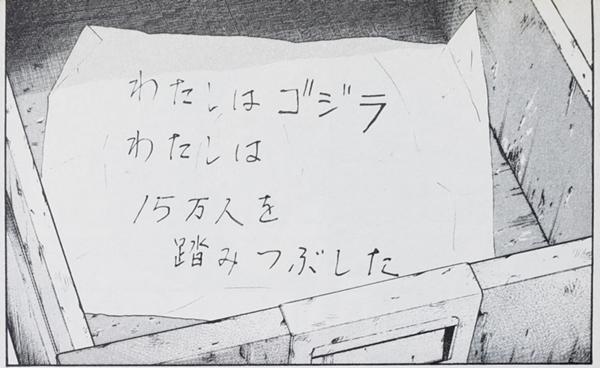 わたしはゴジラ
わたしは
15万人を
踏みつぶした